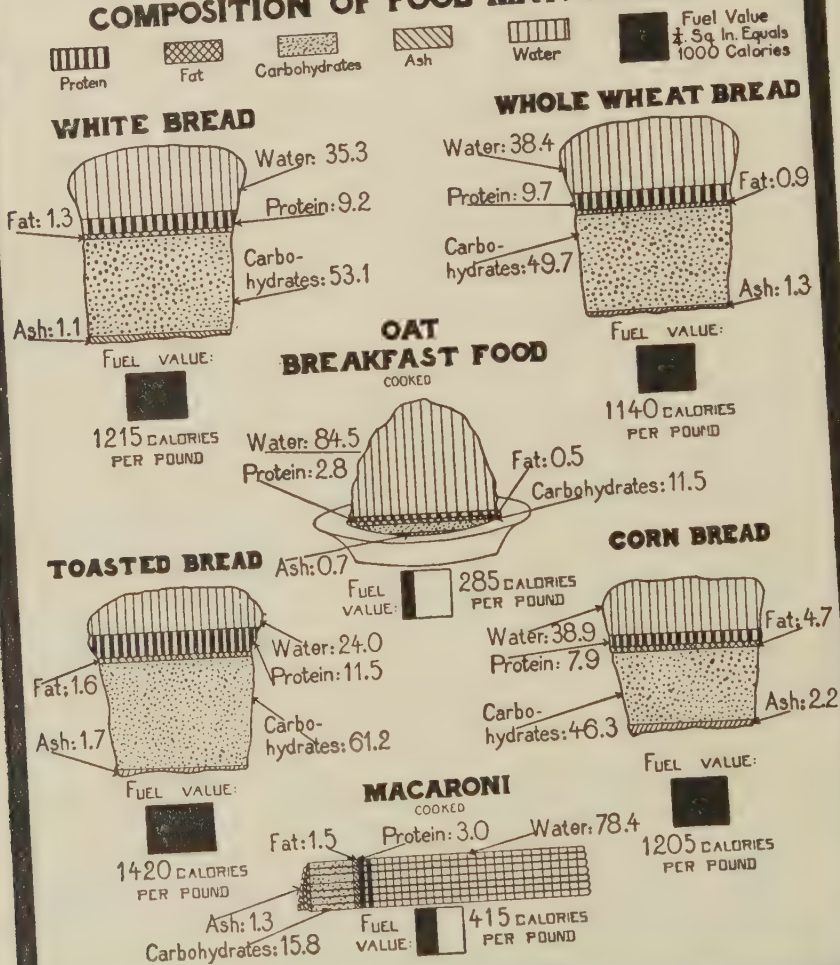 COMPOSITION OF FOOD
Protein
Fat
Carbohydrates
Ash
Water
Fuel Value
¼ Sq. In. Equals
1000 Calories
WHITE BREAD
Water: 35.3
Fat: 1.3
Protein: 9.2
Carbo-
hydrates: 53.1
Ash: 1.1
FUEL VALUE:
1215 CALORIES
PER POUND
WHOLE WHEAT BREAD
Water: 38.4
Protein: 9.7
Fat: 0.9
Carbo-
hydrates: 49.7
Ash: 1.3
FUEL VALUE:
1140 CALORIES
PER POUND
OAT
BREAKFAST FOOD
COOKED
Water: 84.5
Protein: 2.8
Fat: 0.5
Carbohydrates: 11.5
Ash: 0.7
FUEL
VALUE:
285 CALORIES
PER POUND
TOASTED BREAD
Water: 24.0
Protein: 11.5
Fat; 1.6
Carbo-
hydrates: 61.2
Ash: 1.7
FUEL VALUE:
1420 CALORIES
PER POUND
CORN BREAD
Water: 38.9
Protein: 7.9
Fat; 4.7
Carbo-
hydrates: 46.3
Ash: 2.2
FUEL VALUE:
1205 CALORIES
PER POUND
MACARONI
COOKED
Fat: 1.5
Protein: 3.0
Water: 78.4
Ash: 1.3
Carbohydrates: 15.8
FUEL
VALUE:
415 CALORIES
PER POUND